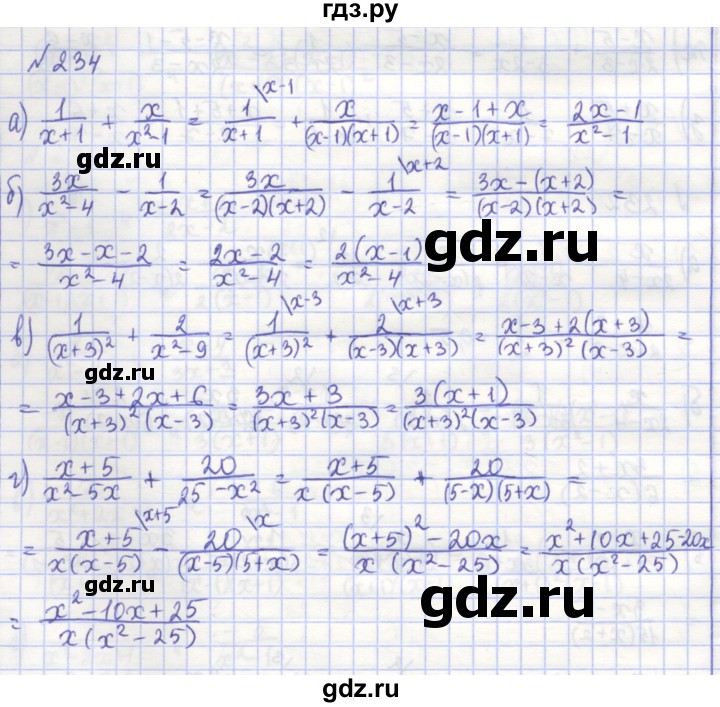 гдз.ру
№ 234
а) 1/(x+1) + x/(x²-1) = 1/(x+1) \x-1 + x/((x-1)(x+1)) = (x-1+x)/((x-1)(x+1)) = (2x-1)/(x²-1)
gdz.ru
б) 3x/(x²-4) - 1/(x-2) = 3x/((x-2)(x+2)) - 1/(x-2) \x+2 = (3x-(x+2))/((x-2)(x+2)) =
= (3x-x-2)/(x²-4) = (2x-2)/(x²-4) = 2(x-1)/(x²-4)
gdz.ru
в) 1/(x+3)² + 2/(x²-9) = 1/(x+3)² \x-3 + 2/((x-3)(x+3)) \x+3 = (x-3+2(x+3))/((x+3)²(x-3)) =
gdz.ru
= (x-3+2x+6)/((x+3)²(x-3)) = (3x+3)/((x+3)²(x-3)) = 3(x+1)/((x+3)²(x-3))
г) (x+5)/(x²-5x) + 20/(25-x²) = (x+5)/(x(x-5)) + 20/((5-x)(5+x)) =
gdz.ru
= (x+5)/(x(x-5)) \x+5 - 20/((x-5)(5+x)) \x = ((x+5)²-20x)/(x(x²-25)) = (x²+10x+25-20x)/(x(x²-25))
gdz.ru
= (x²-10x+25)/(x(x²-25))
gdz.ru
gdz.ru